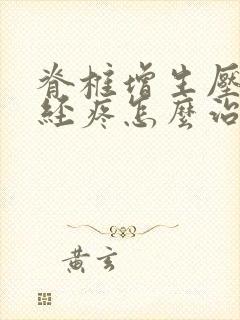 脊椎增生壓
經疼怎麼治
黃玄